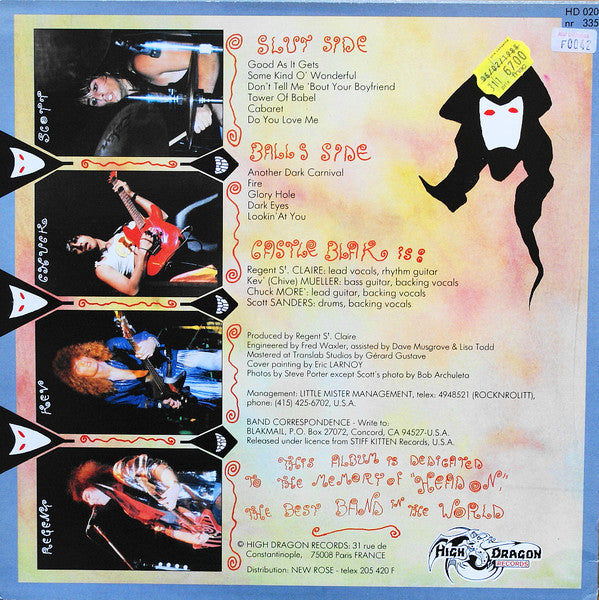 HD 020
nr 335
F0042
SLUT SIDE
Good As It Gets
Some Kind O' Wonderful
Don't Tell Me 'Bout Your Boyfriend
Tower Of Babel
Cabaret
Do You Love Me
BALLS SIDE
Another Dark Carnival
Fire
Glory Hole
Dark Eyes
Lookin' At You
CASTLE BLAK is:
Regent St. CLAIRE: lead vocals, rhythm guitar
Kev' (Chive) MUELLER: bass guitar, backing vocals
Chuck MORE': lead guitar, backing vocals
Scott SANDERS: drums, backing vocals
Produced by Regent St. Claire
Engineered by Fred Waxler, assisted by Dave Musgrove & Lisa Todd
Mastered at Translab Studios by Gérard Gustave
Cover painting by Eric LARNOY
Photos by Steve Porter except Scott's photo by Bob Archuleta
Management: LITTLE MISTER MANAGEMENT, telex: 4948521 (ROCKNROLITT),
phone: (415) 425-6702, U.S.A.
BAND CORRESPONDENCE - Write to:
BLAKMAIL, P.O. Box 27072, Concord, CA 94527-U.S.A.
Released under licence from STIFF KITTEN Records, U.S.A.
THIS ALBUM IS DEDICATED
TO THE MEMORY OF "HEAD ON",
THE BEST BAND IN THE WORLD
© HIGH DRAGON RECORDS: 31 rue de
Constantinople, 75008 Paris FRANCE
Distribution: NEW ROSE - telex 205 420 F
HIGH DRAGON
RECORDS
SCOTT
KEV
REGENT